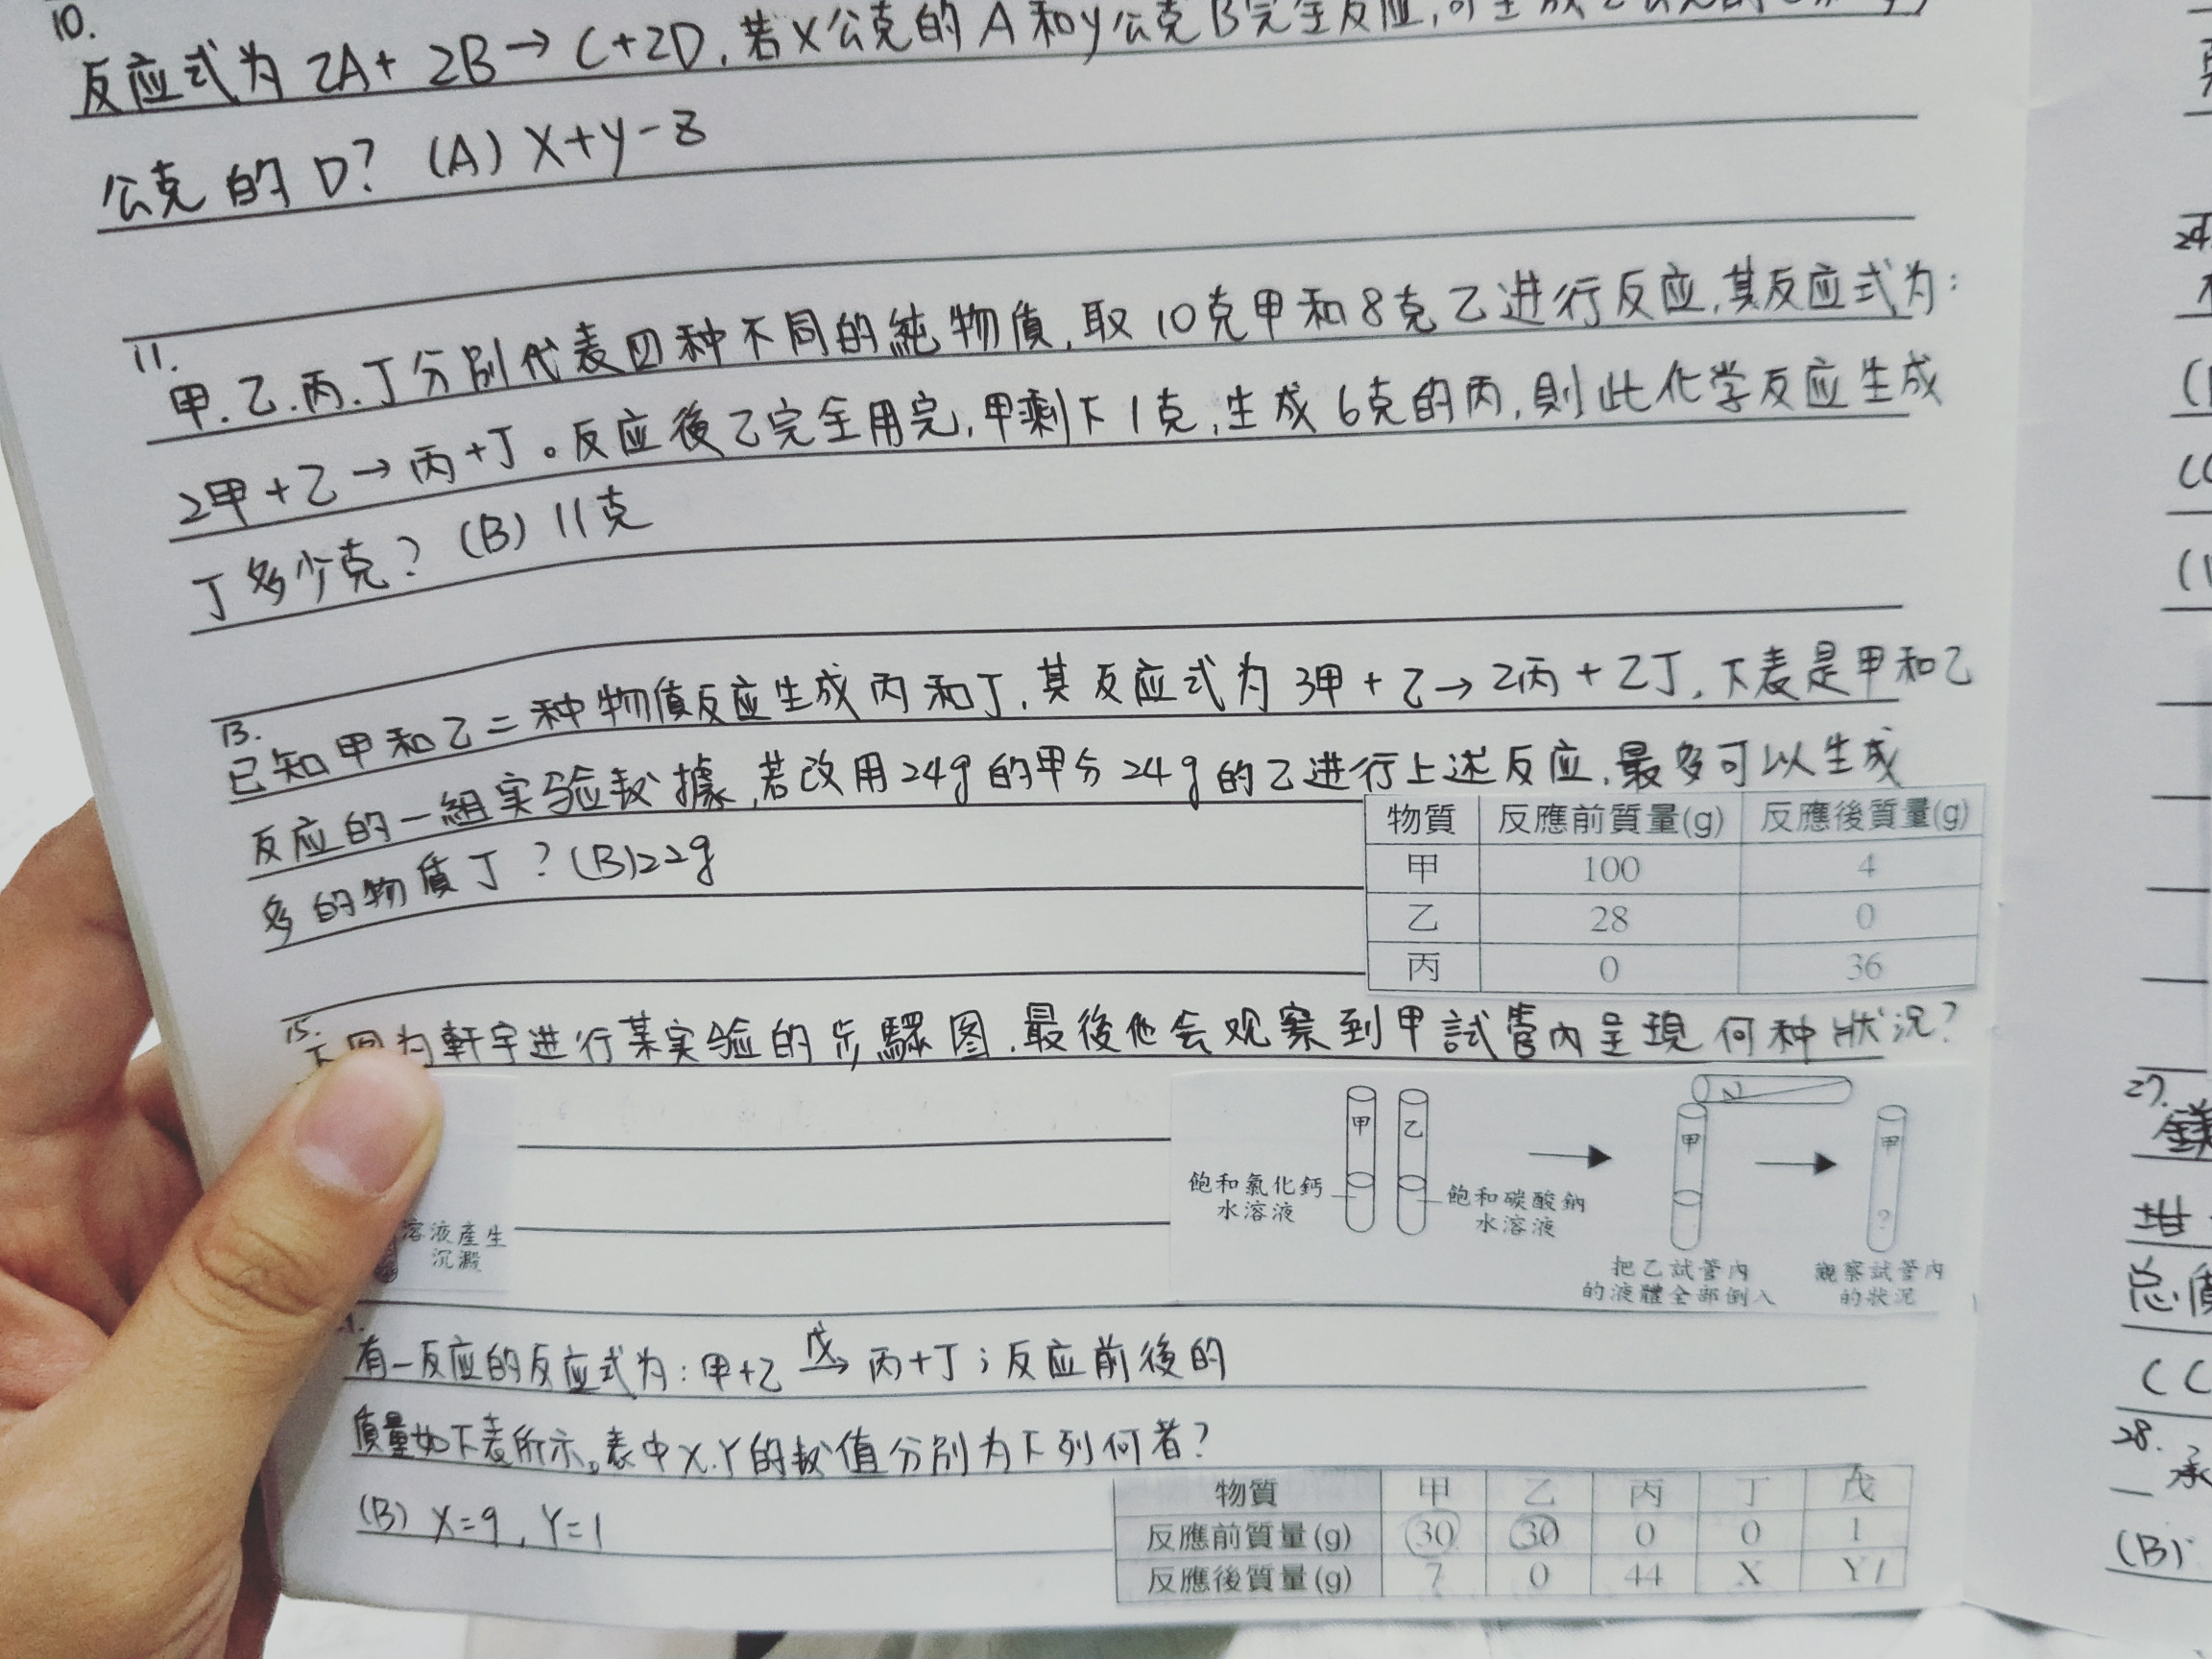 10.
反应式为 2A+ 2B→ C+2D, 若X公克的A和y公克B完全反应,可生成
公克的D? (A) X+y-z
11.
甲.乙.丙.丁分別代表四种不同的純物質,取10克甲和8克乙进行反应,其反应式为:
2甲+乙→丙+丁。反应後乙完全用完,甲剩下1克,生成6克的丙,則此化学反应生成
丁多少克? (B) 11克
13.
已知甲和乙二种物質反应生成丙和丁,其反应式为3甲+乙→2丙+2丁,下表是甲和乙
反应的一組实验数據,若改用24g的甲与24g的乙进行上述反应,最多可以生成
多的物質丁?(B)22g
物質 反應前質量(g) 反應後質量(g)
甲 100 4
乙 28 0
丙 0 36
15.
下图为軒宇进行某实验的步驟图,最後他会观察到甲試管內呈現何种狀況?
溶液產生
沉澱
甲 乙 乙 甲 甲
飽和氯化鈣
水溶液
飽和碳酸鈉
水溶液
?
把乙試管內
的液體全部倒入
觀察試管內
的狀況
有一反应的反应式为:甲+乙 戊→ 丙+丁;反应前後的
質量如下表所示。表中X.Y的数值分別为下列何者?
(B) X=9, Y=1
物質 甲 乙 丙 丁 戊
反應前質量(g) 30 30 0 0 1
反應後質量(g) 7 0 44 X Y 1
24
27.
鎂
坩
总質
(C
28.
承
(B)